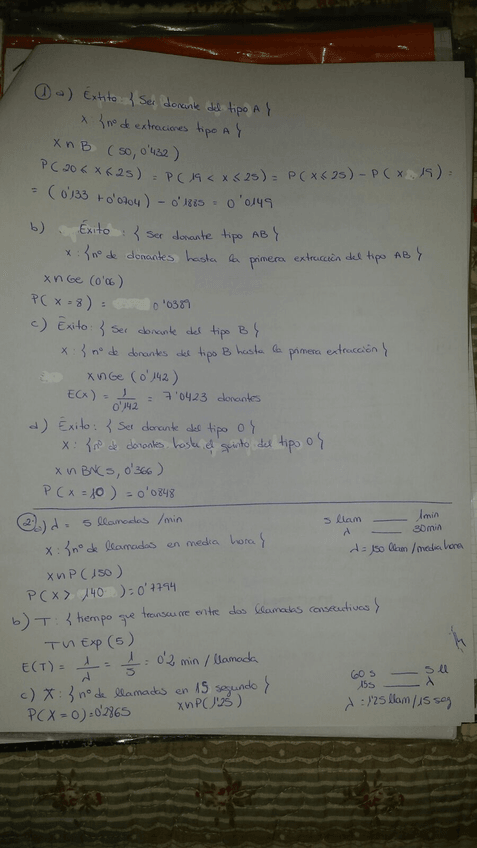 ① a) Éxito: { Ser donante del tipo A }
X: { nº de extracciones tipo A }
X ∩ B (50, 0'432)
P(20 < X ≤ 25) = P(19 < X ≤ 25) = P(X ≤ 25) - P(X 19) =
= (0'133 + 0'0704) - 0'1885 = 0'0149
b) Éxito: { Ser donante tipo AB }
X: { nº de donantes hasta la primera extracción del tipo AB }
X ∩ Ge (0'06)
P(X = 8) = 0'0389
c) Éxito: { Ser donante del tipo B }
X: { nº de donantes del tipo B hasta la primera extracción }
X ∩ Ge (0'142)
E(X) = 1/0'142 = 7'0423 donantes
d) Éxito: { Ser donante del tipo O }
X: { nº de donantes hasta el quinto del tipo O }
X ∩ BN(5, 0'366)
P(X = 10) = 0'0848
② λ = 5 llamadas /min 5 llam —— 1min
X: { nº de llamadas en media hora } λ —— 30min
X ∩ P(150) λ = 150 llam/media hora
P(X > 140) = 0'7794
b) T: { tiempo que transcurre entre dos llamadas consecutivas }
T ∩ Exp (5)
E(T) = 1/λ = 1/5 = 0'2 min / llamada
60 s —— 5 ll
c) X: { nº de llamadas en 15 segundo } 15s —— λ
P(X = 0) = 0'2865 X ∩ P(1'25) λ = 1'25 llam/15 seg